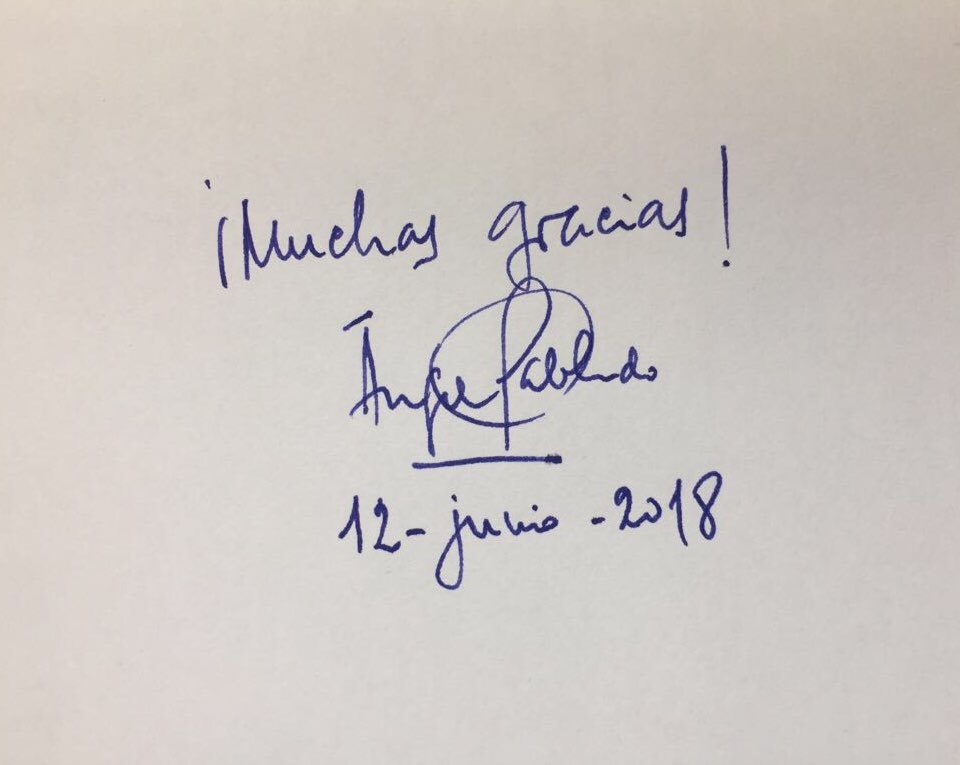 ¡Muchas gracias!
Ángel
12-junio-2018